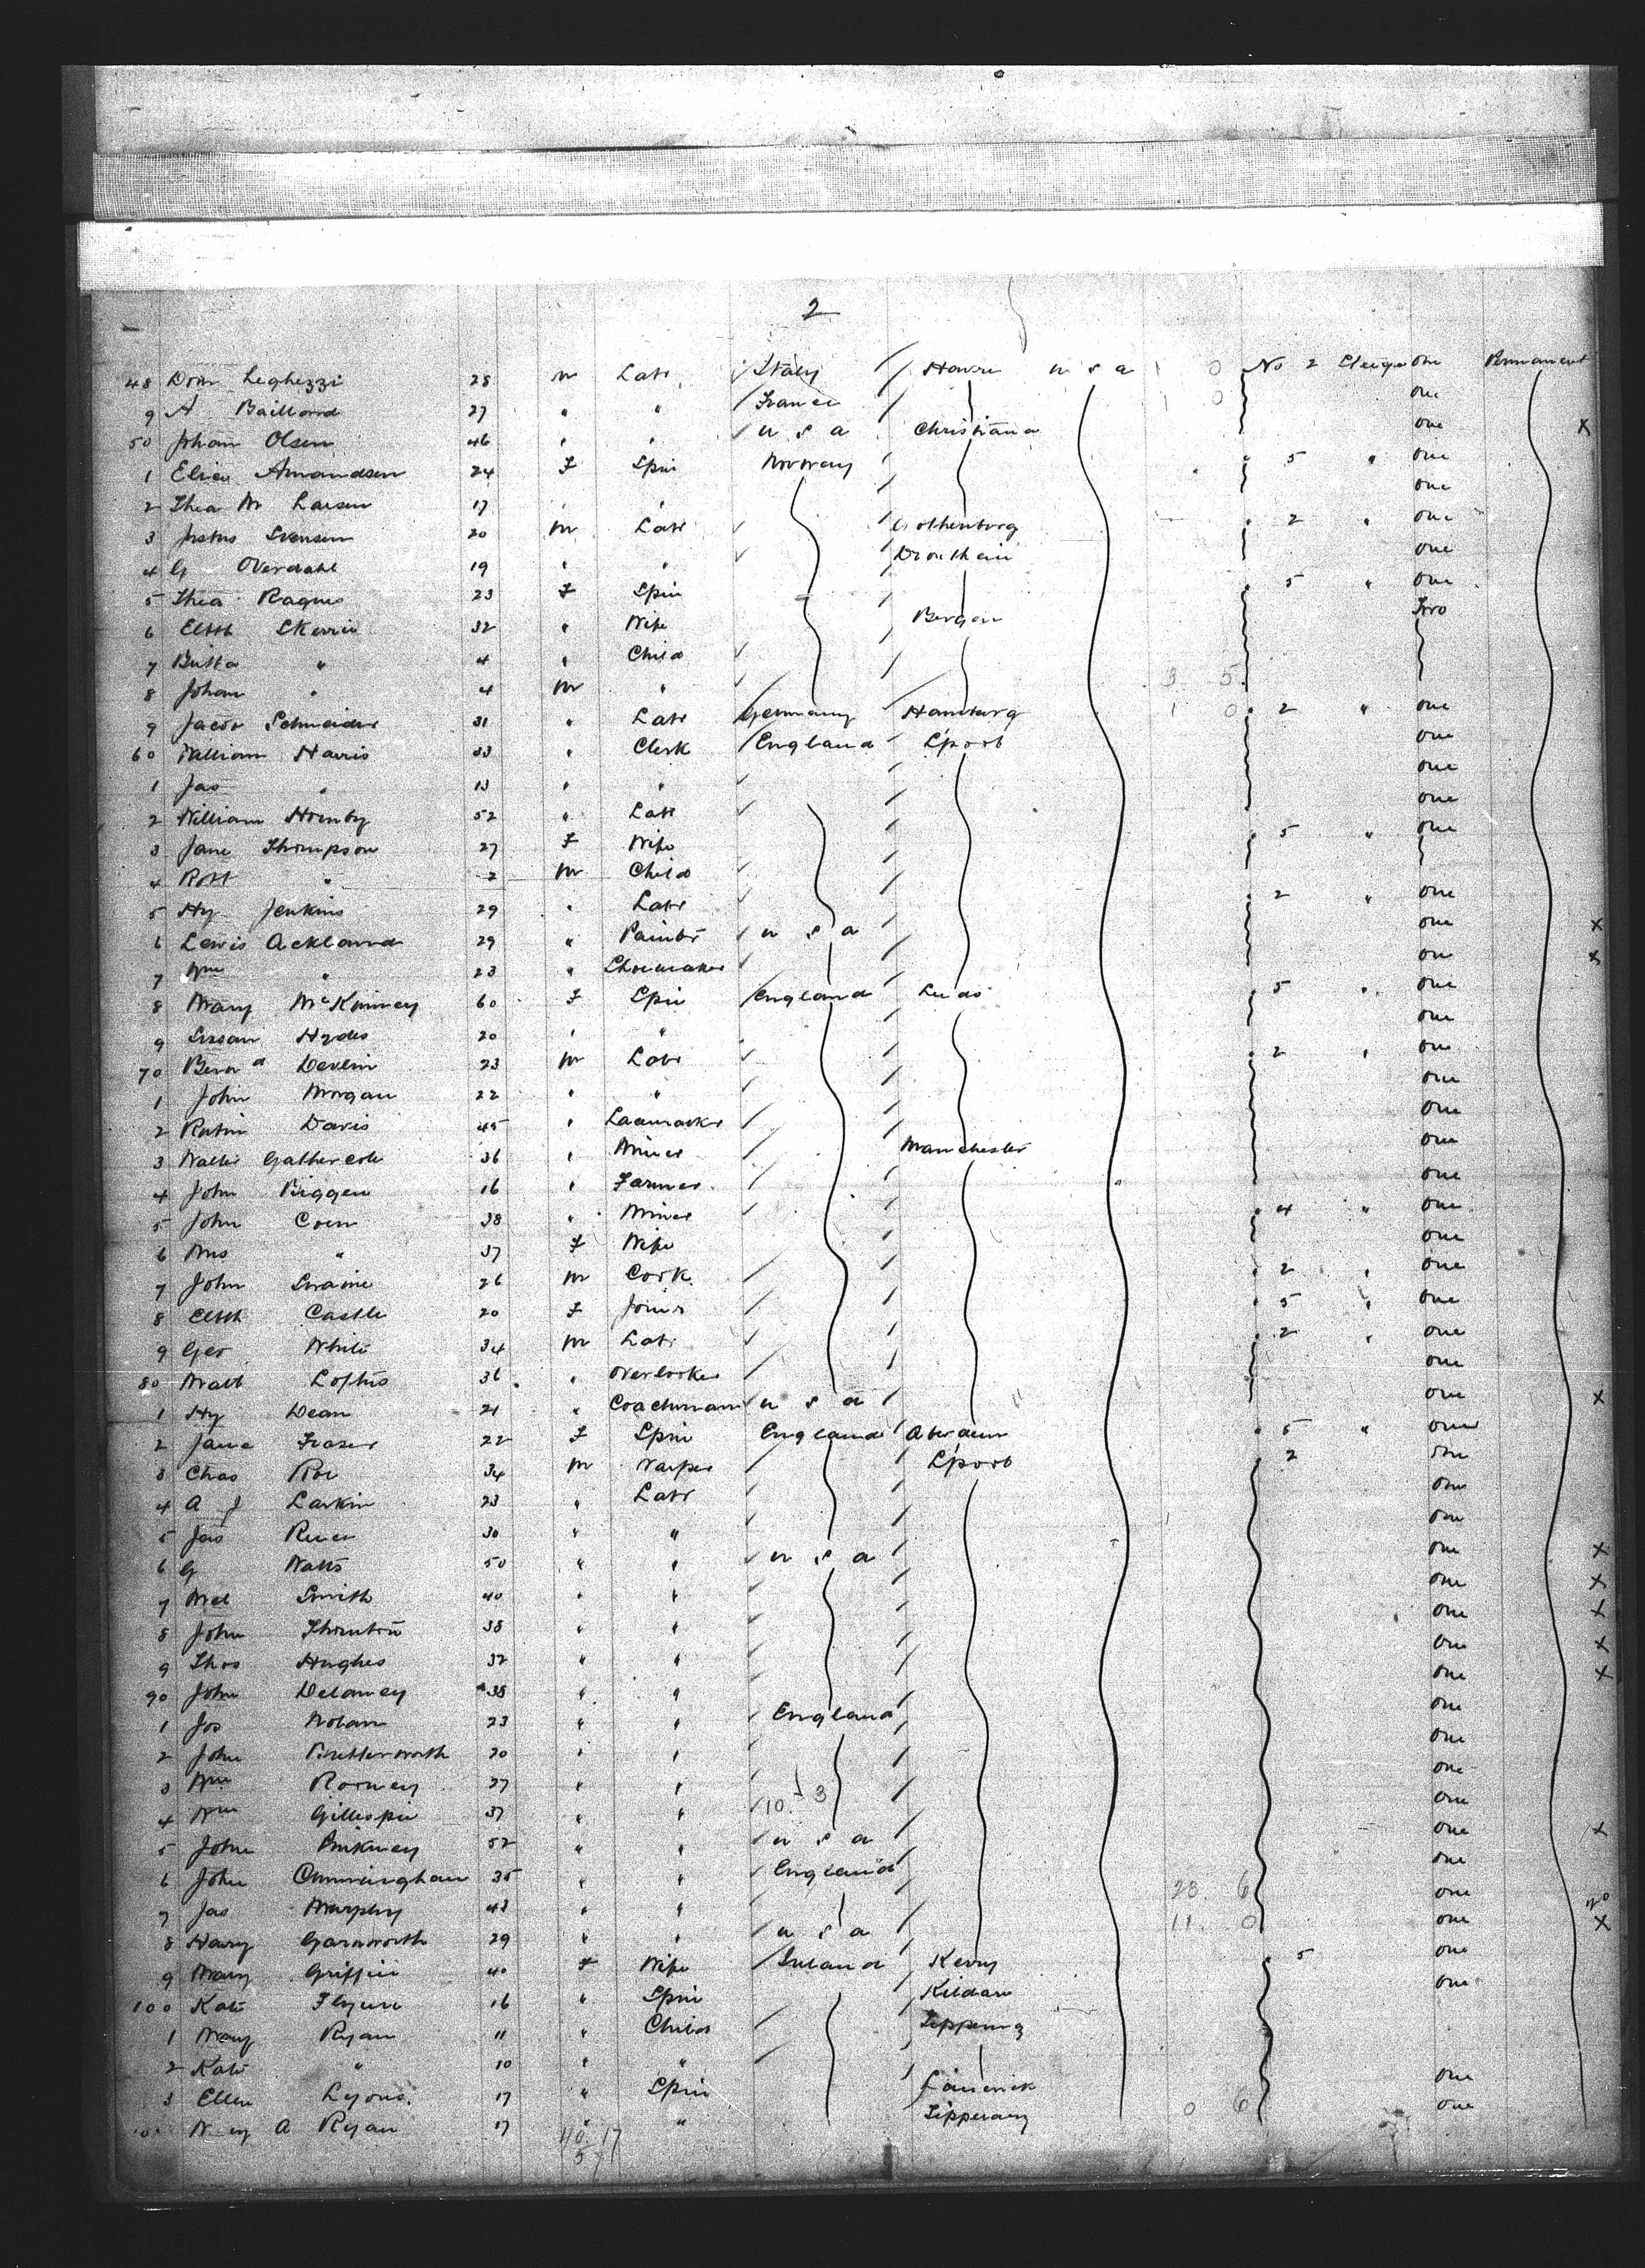 2
48 Dom Leghezzi 28 m Labr Italy Havre u s a 1 0 No 2 Steerge One Permanent
9 A Baillard 27 " " France 1 0 one
50 Johan Olsen 46 " " u s a Christiana one x
1 Elise Amandsen 24 F Spin Norway 5 " one
2 Thea M Larsen 17 " " one
3 Justus Svensen 20 m Labr Gothenburg 2 " one
4 G Overdahl 19 " " Drontheim one
5 Thea Ragnes 23 F Spin 5 " one
6 Elizth Skerrie 32 " Wife Bergen Two
7 Britta " 4 " Child
8 Johan " 4 m " 3 5
9 Jacob Schneider 31 " Labr Germany Hamburg 1 0 2 " one
60 William Harris 33 " Clerk England L'pool one
1 Jas " 13 " " one
2 William Hornby 52 " Labr one
3 Jane Thompson 27 F Wife 5 " one
4 Robt " 2 m Child
5 Hy Jenkins 29 " Labr 2 " one
6 Lewis Ackland 29 " Paintr u s a one x
7 Wm " 23 " Shoemaker one x
8 Mary McKinney 60 F Spin England Leeds 5 " one
9 Susan Hydes 20 " " one
70 Bernd Devlin 23 m Labr 2 " one
1 John Morgan 22 " " one
2 Robin Davis 45 " one
3 Walter Gathercole 36 " Miner Manchester one
4 John Biggen 16 " Farmer one
5 John Coen 38 " Miner 4 " one
6 Mrs " 37 F Wife one
7 John Swaine 26 m Cook 2 " one
8 Elizth Castle 20 F Joinr 5 " one
9 Geo White 34 m Labr 2 " one
80 Matt Loftus 36 " Overlooker one
1 Hy Dean 21 " Coachman u s a one x
2 Jane Fraser 22 F Spin England Aberdeen 5 " one
3 Chas Roe 34 m L'pool 2 one
4 A J Larkin 23 " Labr one
5 Jas 30 " " one
6 G Watts 50 " " u s a one x
7 Smith 40 " " one x
8 John Thornton 38 " " one x
9 Thos Hughes 32 " " one x
90 John Delaney 38 " " one x
1 Jos Nolan 23 " " England one
2 John Butterworth 20 " " one
3 Wm Rooney 27 " " one
4 Wm Gillespie 37 " " 10 3 one
5 John Pinkney 52 " " u s a one x
6 John Cunningham 35 " " England one
7 Jas Murphy 43 " " 28 6 one no
8 Harry Garnworth 29 " " u s a 11 0 one x
9 Mary Griffin 40 F Wife Ireland Kerry 5 one
100 Kate Flynn 16 " Spin Kildare one
1 Mary Ryan 11 " Child Tipperary
2 Kate " 10 " "
3 Ellen Lyons 17 " Spin Limerick one
A Ryan 17 " " Tipperary 0 6 one
40 17
57